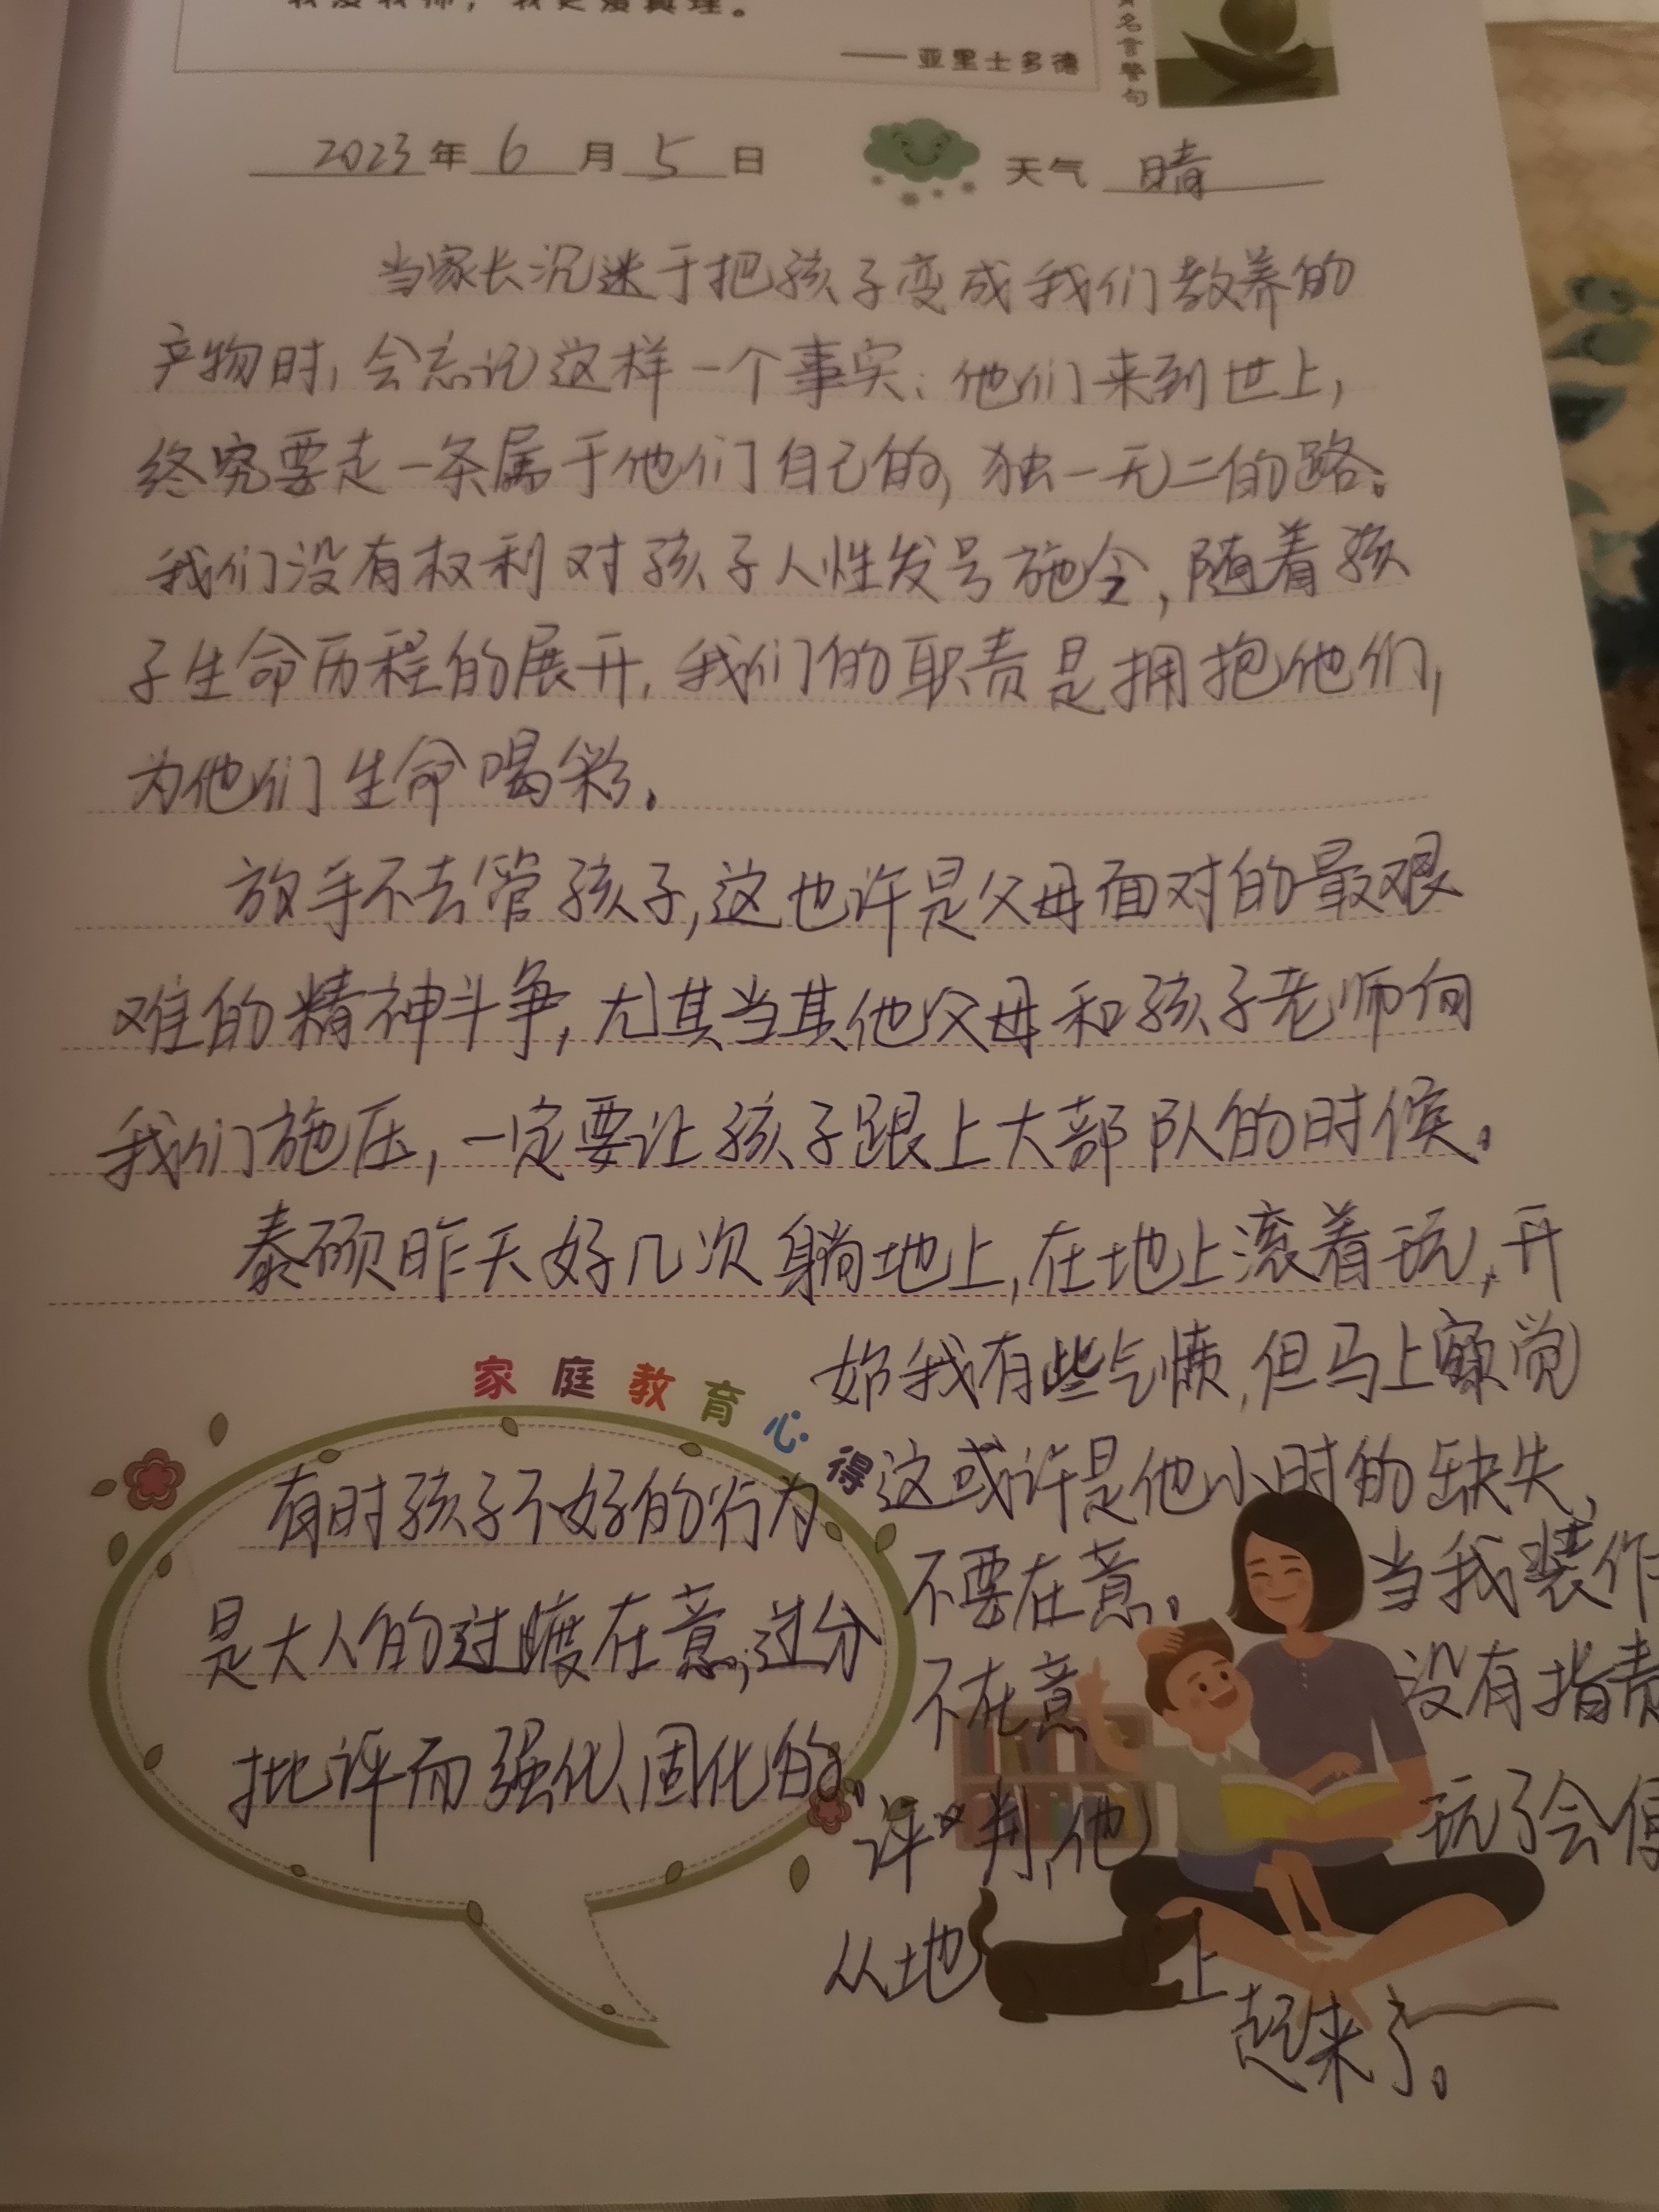 我爱我师，我更爱真理。
——亚里士多德
名言警句
2023年6月5日 天气 晴
当家长沉迷于把孩子变成我们教养的
产物时，会忘记这样一个事实：他们来到世上，
终究要走一条属于他们自己的，独一无二的路。
我们没有权利对孩子人性发号施令，随着孩
子生命历程的展开，我们的职责是拥抱他们，
为他们生命喝彩。
放手不去管孩子，这也许是父母面对的最艰
难的精神斗争，尤其当其他父母和孩子老师向
我们施压，一定要让孩子跟上大部队的时候。
泰硕昨天好几次躺地上，在地上滚着玩，开
始我有些气愤，但马上觉
这或许是他小时的缺失，
不要在意。当我装作
不在意 没有指责
评判，他 玩了会便
从地上
起来了。
家庭教育心得
有时孩子不好的行为
是大人的过度在意，过分
批评而强化、固化的。